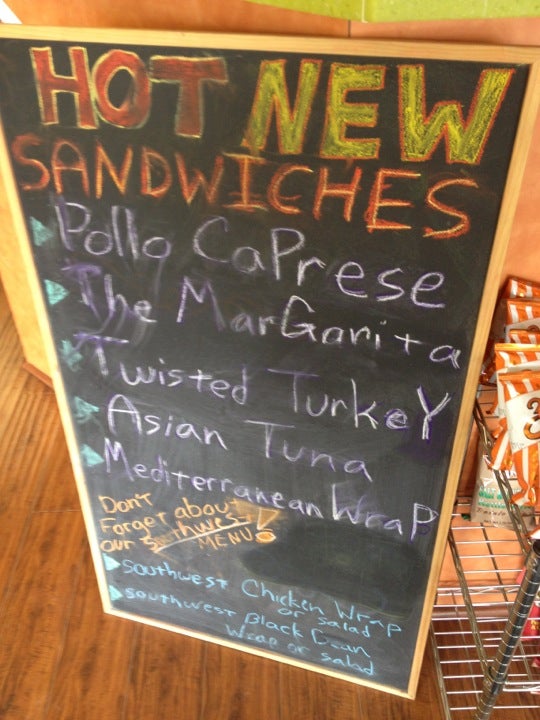 HOT NEW
SANDWICHES
Pollo CaPrese
The MarGarita
Twisted TurkeY
Asian Tuna
Mediterranean WraP
Don't
Forget about
our Southwest
MENU!
Southwest Chicken Wrap
or salad
Southwest Black Bean
Wrap or salad
3